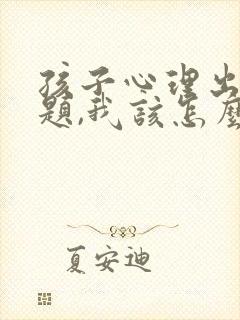 孩子心理出
题,我该怎麼
夏安迪